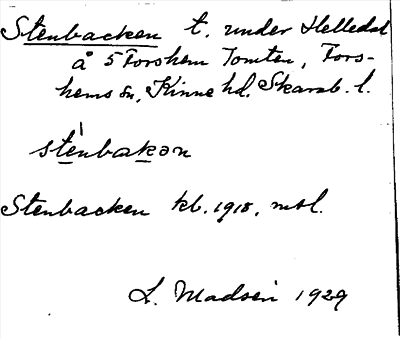 Stenbacken t. under Helledal
å 5 Forshem Tomten, Fors-
hems sn, Kinne hd. Skarab. l.
stènbakən
Stenbacken kb. 1918, mtl.
L. Madsén 1929